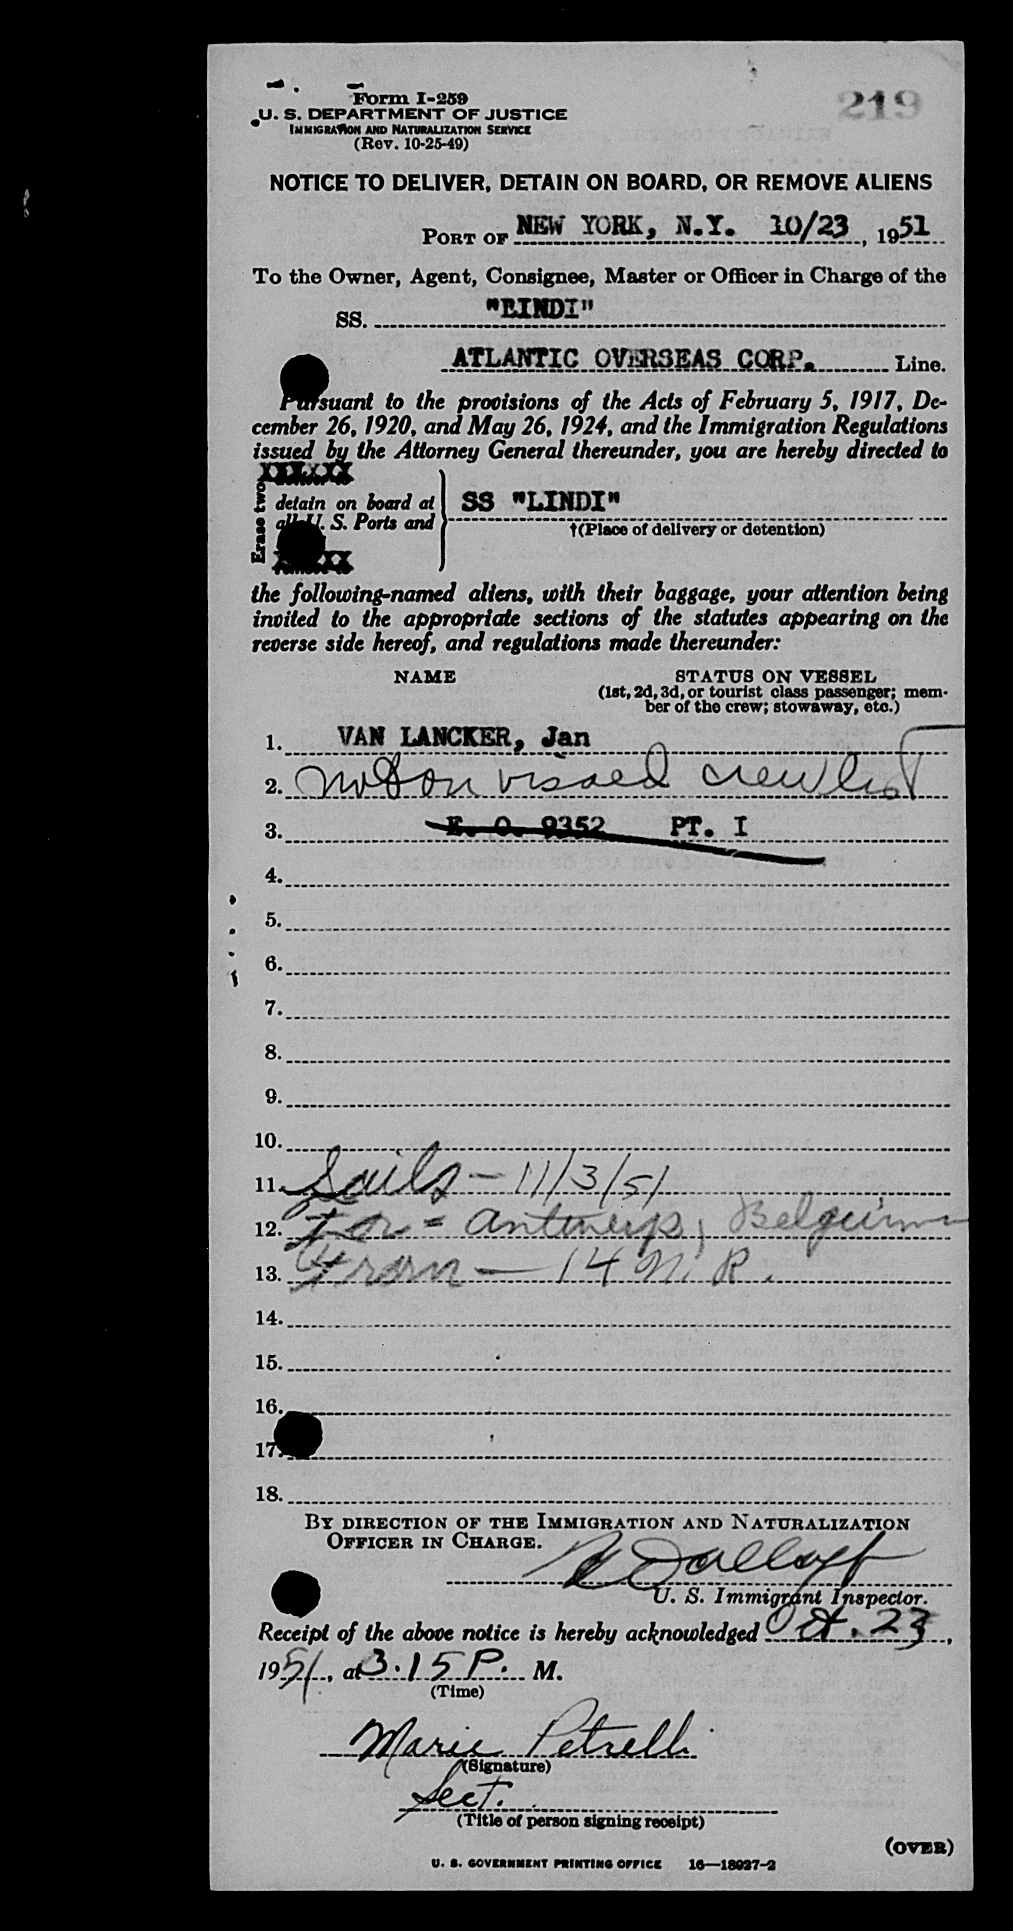 219
Form I-259
U. S. DEPARTMENT OF JUSTICE
IMMIGRATION AND NATURALIZATION SERVICE
(Rev. 10-25-49)
NOTICE TO DELIVER, DETAIN ON BOARD, OR REMOVE ALIENS
PORT OF NEW YORK, N.Y. 10/23, 1951
To the Owner, Agent, Consignee, Master or Officer in Charge of the
SS. "LINDI"
ATLANTIC OVERSEAS CORP. Line.
Pursuant to the provisions of the Acts of February 5, 1917, De-
cember 26, 1920, and May 26, 1924, and the Immigration Regulations
issued by the Attorney General thereunder, you are hereby directed to
Erase two
detain on board at
all U. S. Ports and
SS "LINDI"
†(Place of delivery or detention)
the following-named aliens, with their baggage, your attention being
invited to the appropriate sections of the statutes appearing on the
reverse side hereof, and regulations made thereunder:
NAME STATUS ON VESSEL
(1st, 2d, 3d, or tourist class passenger; mem-
ber of the crew; stowaway, etc.)
1. VAN LANCKER, Jan
2. Not on visaed crew list
3. E. O. 9352 PT. I
4.
5.
6.
7.
8.
9.
10.
11. Sails - 11/3/51
12. For = Antwerp, Belguim
13. From - 14 N. R.
14.
15.
16.
17.
18.
BY DIRECTION OF THE IMMIGRATION AND NATURALIZATION
OFFICER IN CHARGE.
U. S. Immigrant Inspector.
Receipt of the above notice is hereby acknowledged Oct. 23,
1951, at 3.15 P. M.
(Time)
Marie Petrelli
(Signature)
Sect.
(Title of person signing receipt)
(OVER)
U. S. GOVERNMENT PRINTING OFFICE 16—18027-2